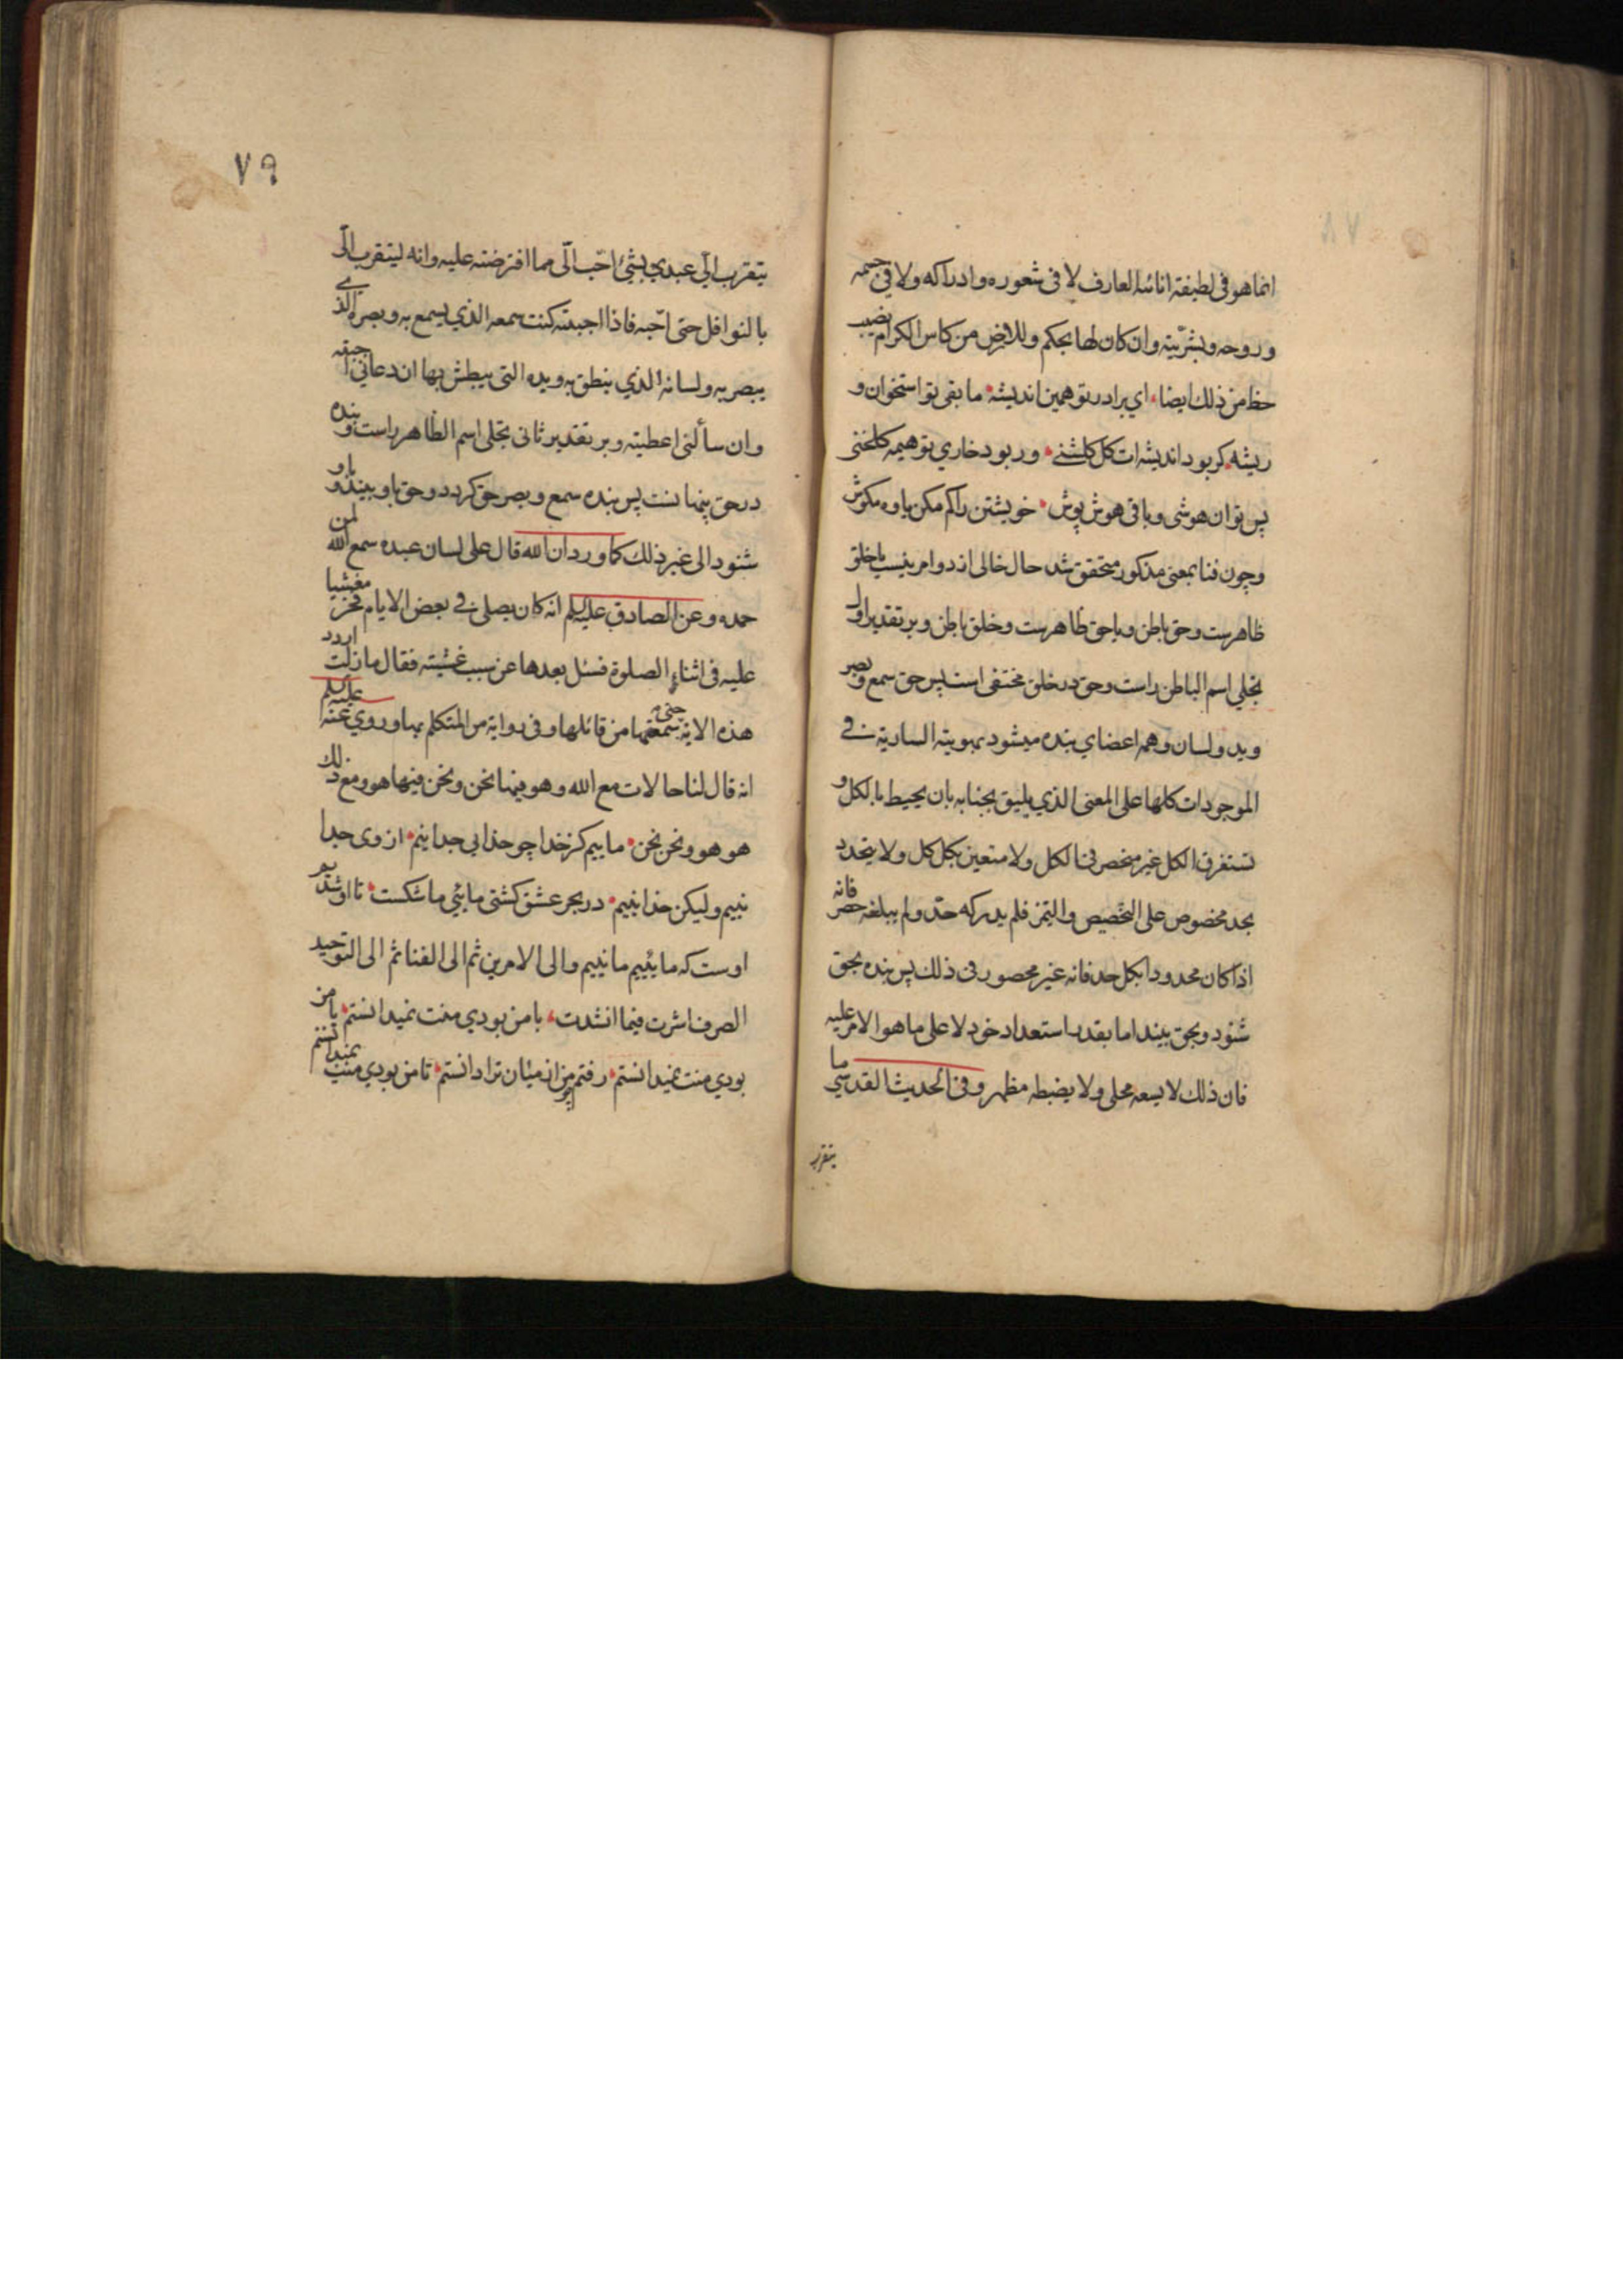 انما هو فی لطیفة انائیة العارف لا فی شعوره و ادراکه ولا فی جسمه
و روحه و بشریّته وان کان لها بحکم وللارض من کاس الکرام نصیب
حظ من ذلک ایضا، ای برادر تو همین اندیشه • ما بقی تو استخوان و
ریشه • کر بود اندیشه ات کل کلشنے • ور بود خاری تو هیمه کلخنی
پس تو ان هوشی و باقی هوش پوش • خویشتن را کم مکن یاوه مکوش
و چون فنا بمعنی مذکور متحقق شد حال خالی از دو امر نیست یا خلق
ظاهرست و حق باطن و یا حق ظاهرست و خلق باطن و بر تقدیر اول
تجلی اسم الباطن راست و حق در خلق مختفی است پس حق سمع و بصر
و ید و لسان و همه اعضای بنده میشود بهویته الساریة فے
الموجودات کلها علی المعنی الذی یلیق بجنابه بان یحیط بالکل و
تستغرق الکل غیر منحصر فی الکل ولا متعین بکل کل ولا یتحدد
بحد مخصوص علی التخصیص والتمیز فلم یدرکه حدّ ولم یبلغه حصر فانه
اذا کان محدودا بکل حد فانه غیر محصور فی ذلک پس بنده بحق
شنود و بحق بیند اما بقدر استعداد خود لا علی ما هو الامر علیه
فان ذلک لا یسعه مجلی ولا یضبطه مظهر و فی الحدیث القدسی ما
یتقرب
٧٩
یتقرب الیّ عبدی بشیء احّب الّی مما افترضته علیه وانه لیتقرب الّی
بالنوافل حتی احّبه فاذا احببته کنت سمعه الذی یسمع به و بصره الذی
یبصر به ولسانه الذی ینطق به ویده التی یبطش بها ان دعانی اجبته
وان سألنی اعطیته و بر تقدیر ثانی تجلی اسم الظاهر راست و بنده
در حق پنهانست پس بنده سمع و بصر حق کردد و حق باو بیند و باو
شنود الی غیر ذلک کما ورد ان الله قال علی لسان عبده سمع الله لمن
حمده و عن الصادق علیه السلم انه کان یصلی فے بعض الایام فخر مغشیا
علیه فی اثناء الصلوة فسئل بعدها عن سبب غشیته فقال ما زلت اردد
هذه الایة حتی سمعتها من قائلها و فی روایة من المتکلم بها و روی عنه علیه السلم
انه قال لنا حالات مع الله و هو فیها نحن و نحن فیها هو و مع ذلک
هو هو و نحن نحن • ماییم کز خدا چو خدایی جداییم • از وی جدا
نییم ولیکن خدا نییم • در بحر عشق کشتی مائی ما شکست • تا او شدیم
اوست که مائییم ما نییم و الی الامرین ثم الی الفنا ثم الی التوحید
الصرف اشرت فیما انشدت، با من بودی منت نمیدانستم • یا من
بودی منت نمیدانستم • رفتم چو من از میان ترا دانستم • تا من بودی منت نمیدانستم